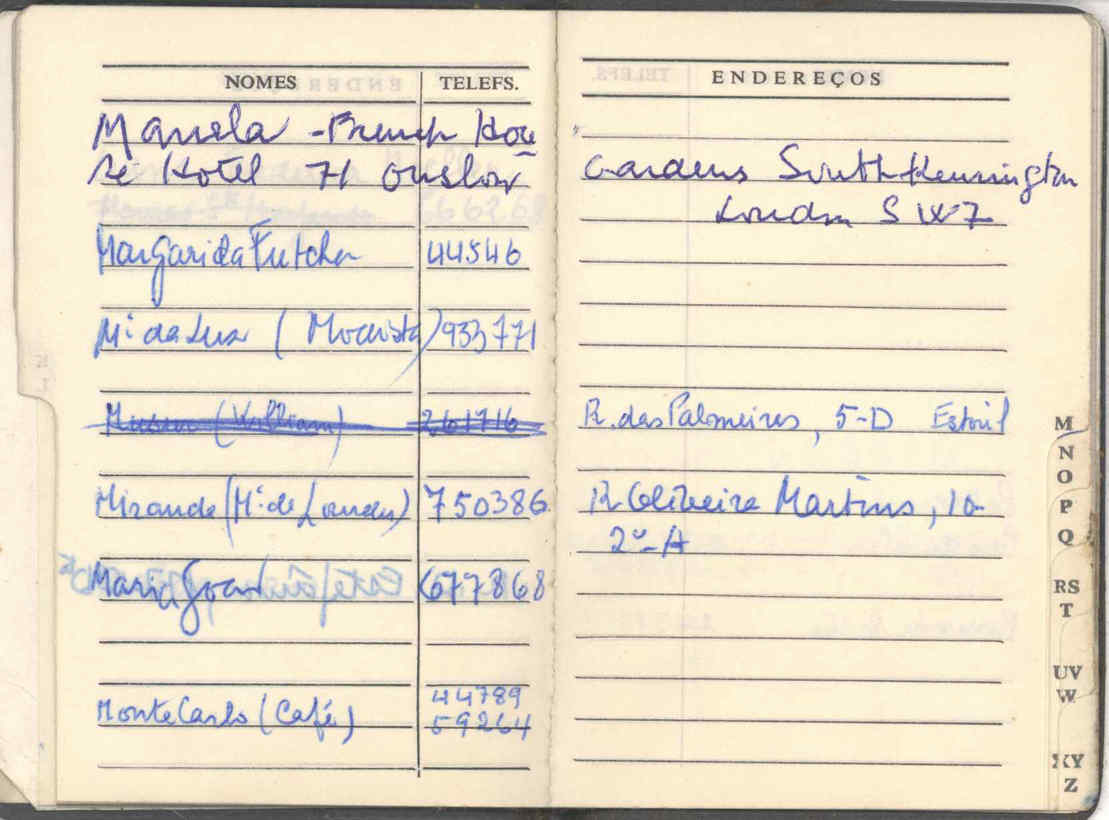 NOMES TELEFS. ENDEREÇOS
Manuela - French Hou
se Hotel 71 Onslow Gardens South Kensington
London S W 7
Margarida Futcher 44546
Mª da Luz (Modista) 933771
(William) 261716 R. das Palmeiras, 5-D Estoril
Miranda (Mª de Lourdes) 750386 R. Oliveira Martins, 10-
2º-A
Maria João 677868
44789
Monte Carlo (Café) 59264
M
N
O
P
Q
RS
T
UV
W
XY
Z